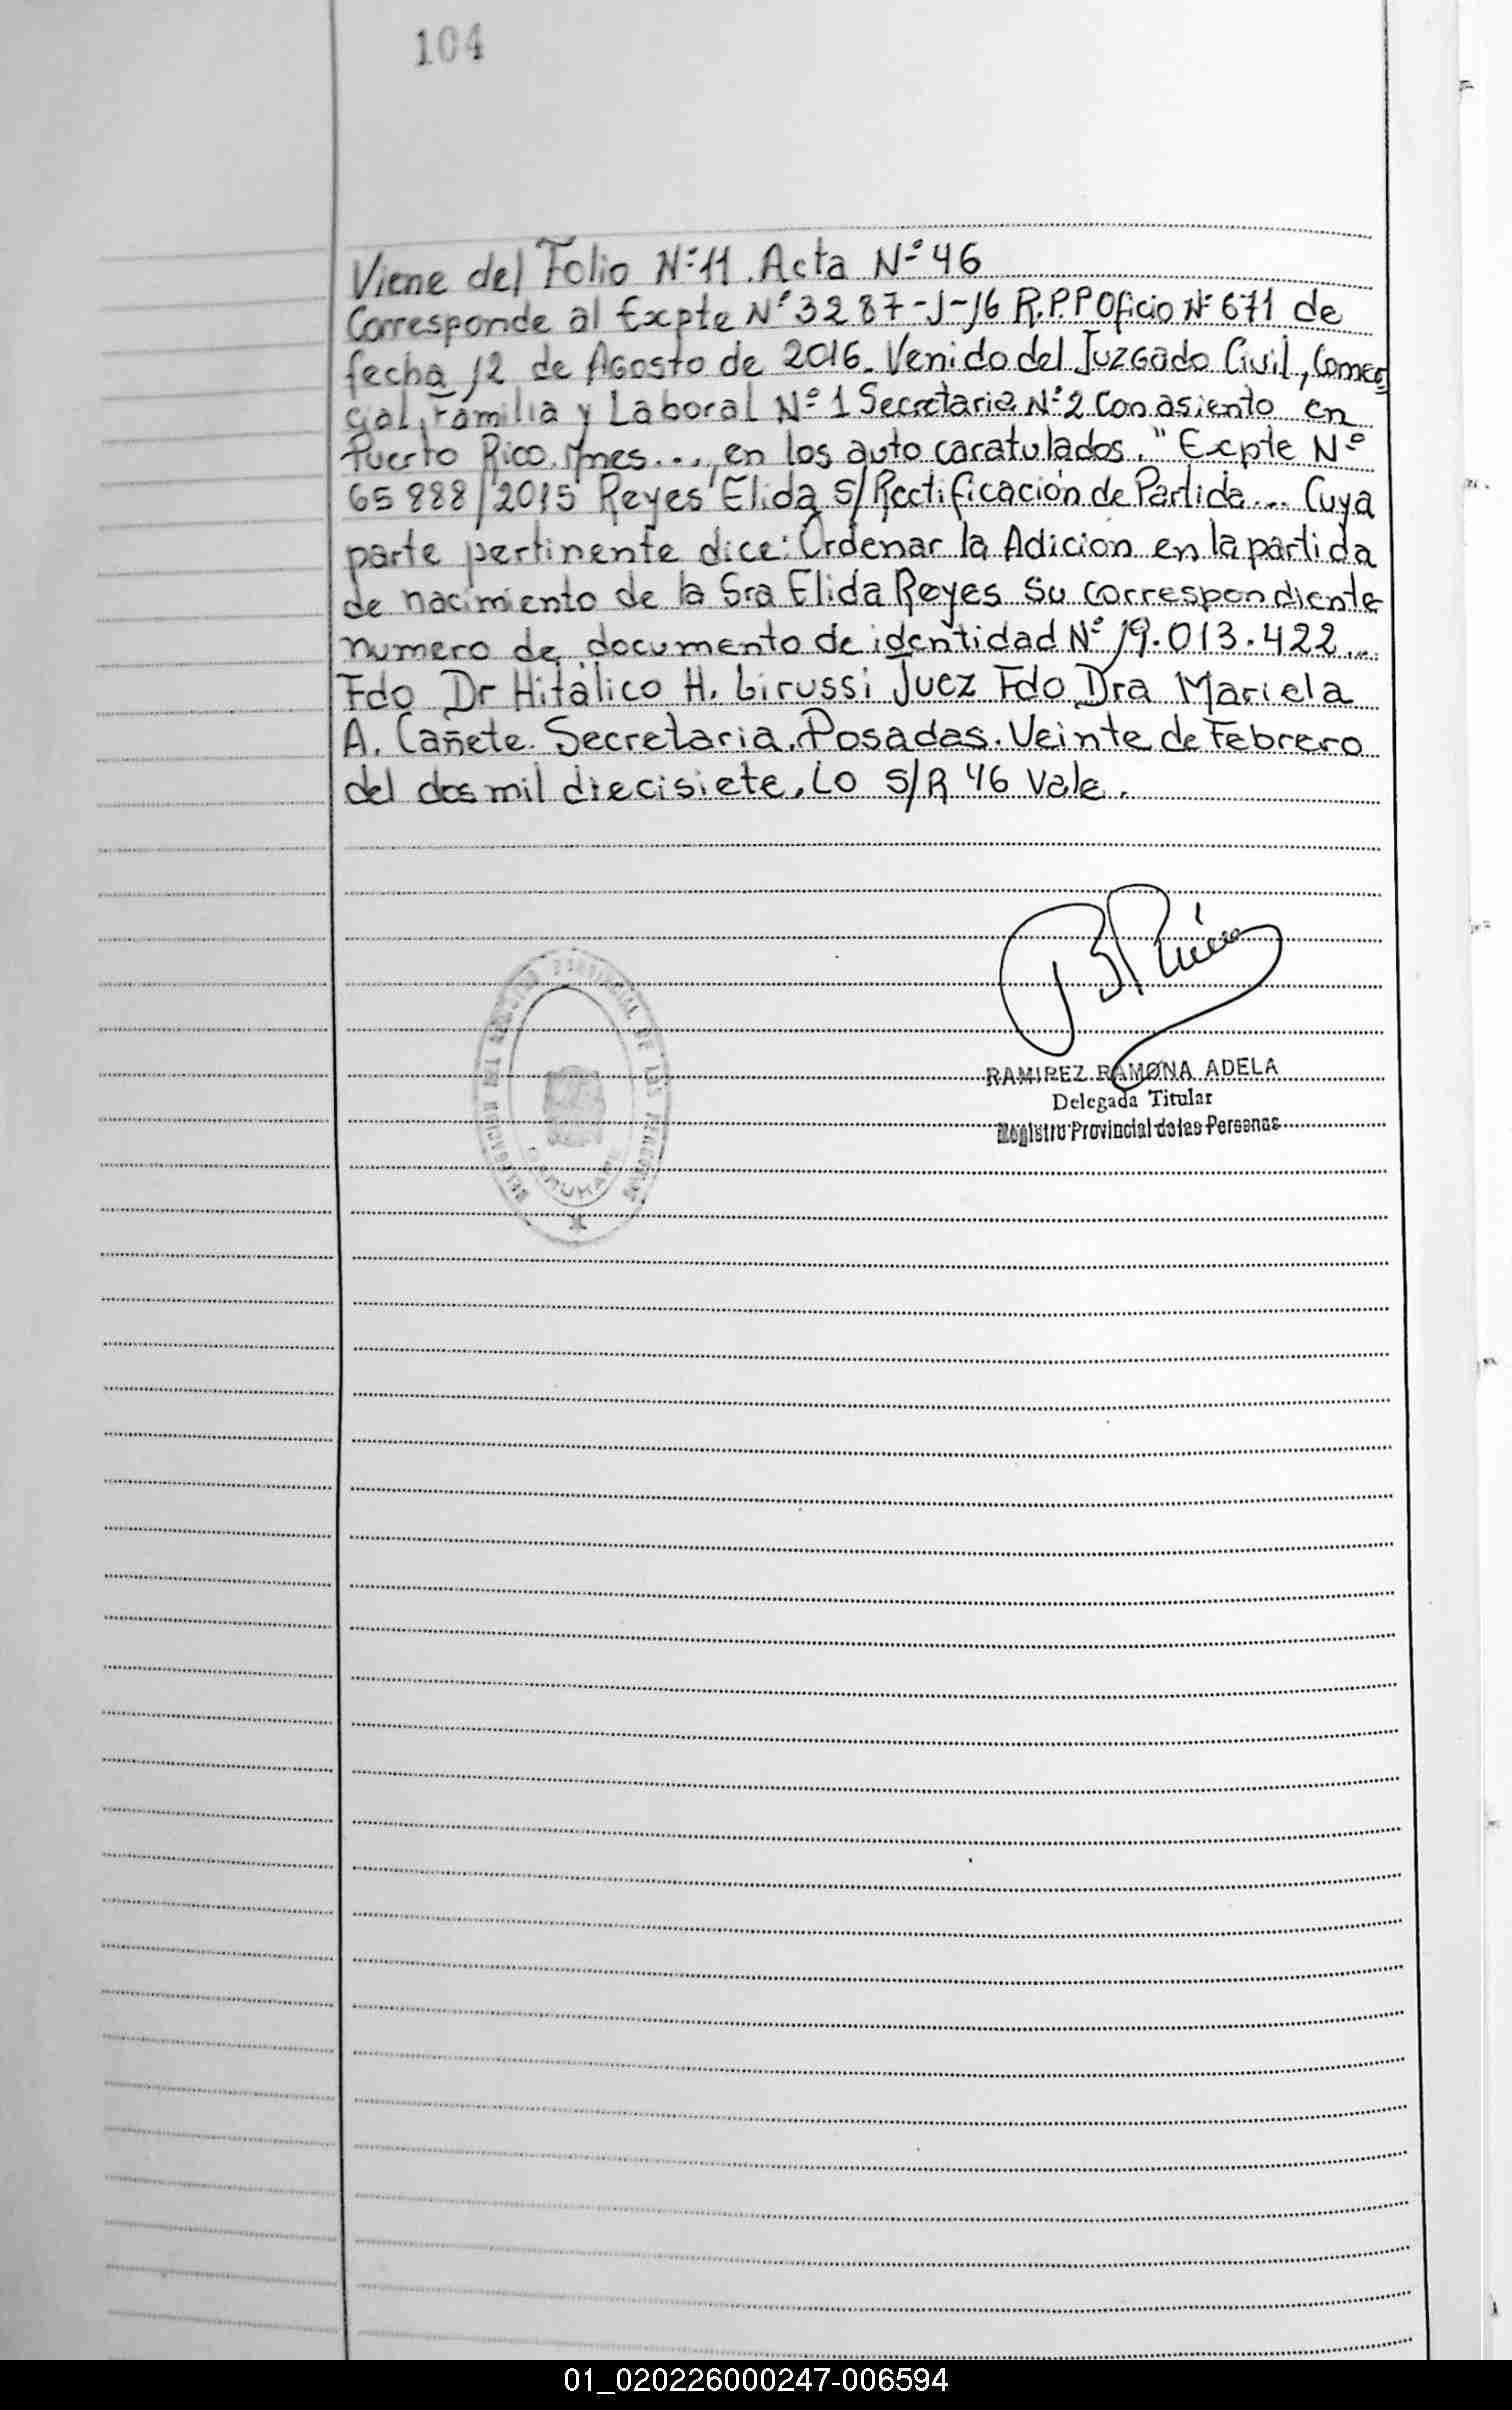 104
Viene del Folio Nº 11. Acta Nº 46
Corresponde al Excpte Nº 3287-J-16 R.P.P Oficio Nº 671 de
fecha 12 de Agosto de 2016. Venido del Juzgado Civil, Comer
cial, Familia y Laboral Nº 1 Secretaria Nº 2 con asiento en
Puerto Rico. Mnes..., en los auto caratulados. "Excpte Nº
65888/2015 Reyes Elida S/Rectificación de Partida... Cuya
parte pertinente dice: Ordenar la Adicion en la partida
de nacimiento de la Sra Elida Reyes su correspondiente
numero de documento de identidad Nº 19.013.422...
Fdo Dr Hitalico H. Lirussi Juez Fdo Dra Mariela
A. Cañete. Secretaria. Posadas. Veinte de Febrero
del dos mil diecisiete. Lo S/R 46 Vale.
RAMIREZ RAMONA ADELA
Delegada Titular
Registro Provincial de las Personas
DELEGACION DEL REGISTRO PROVINCIAL DE LAS PERSONAS
01_020226000247-006594